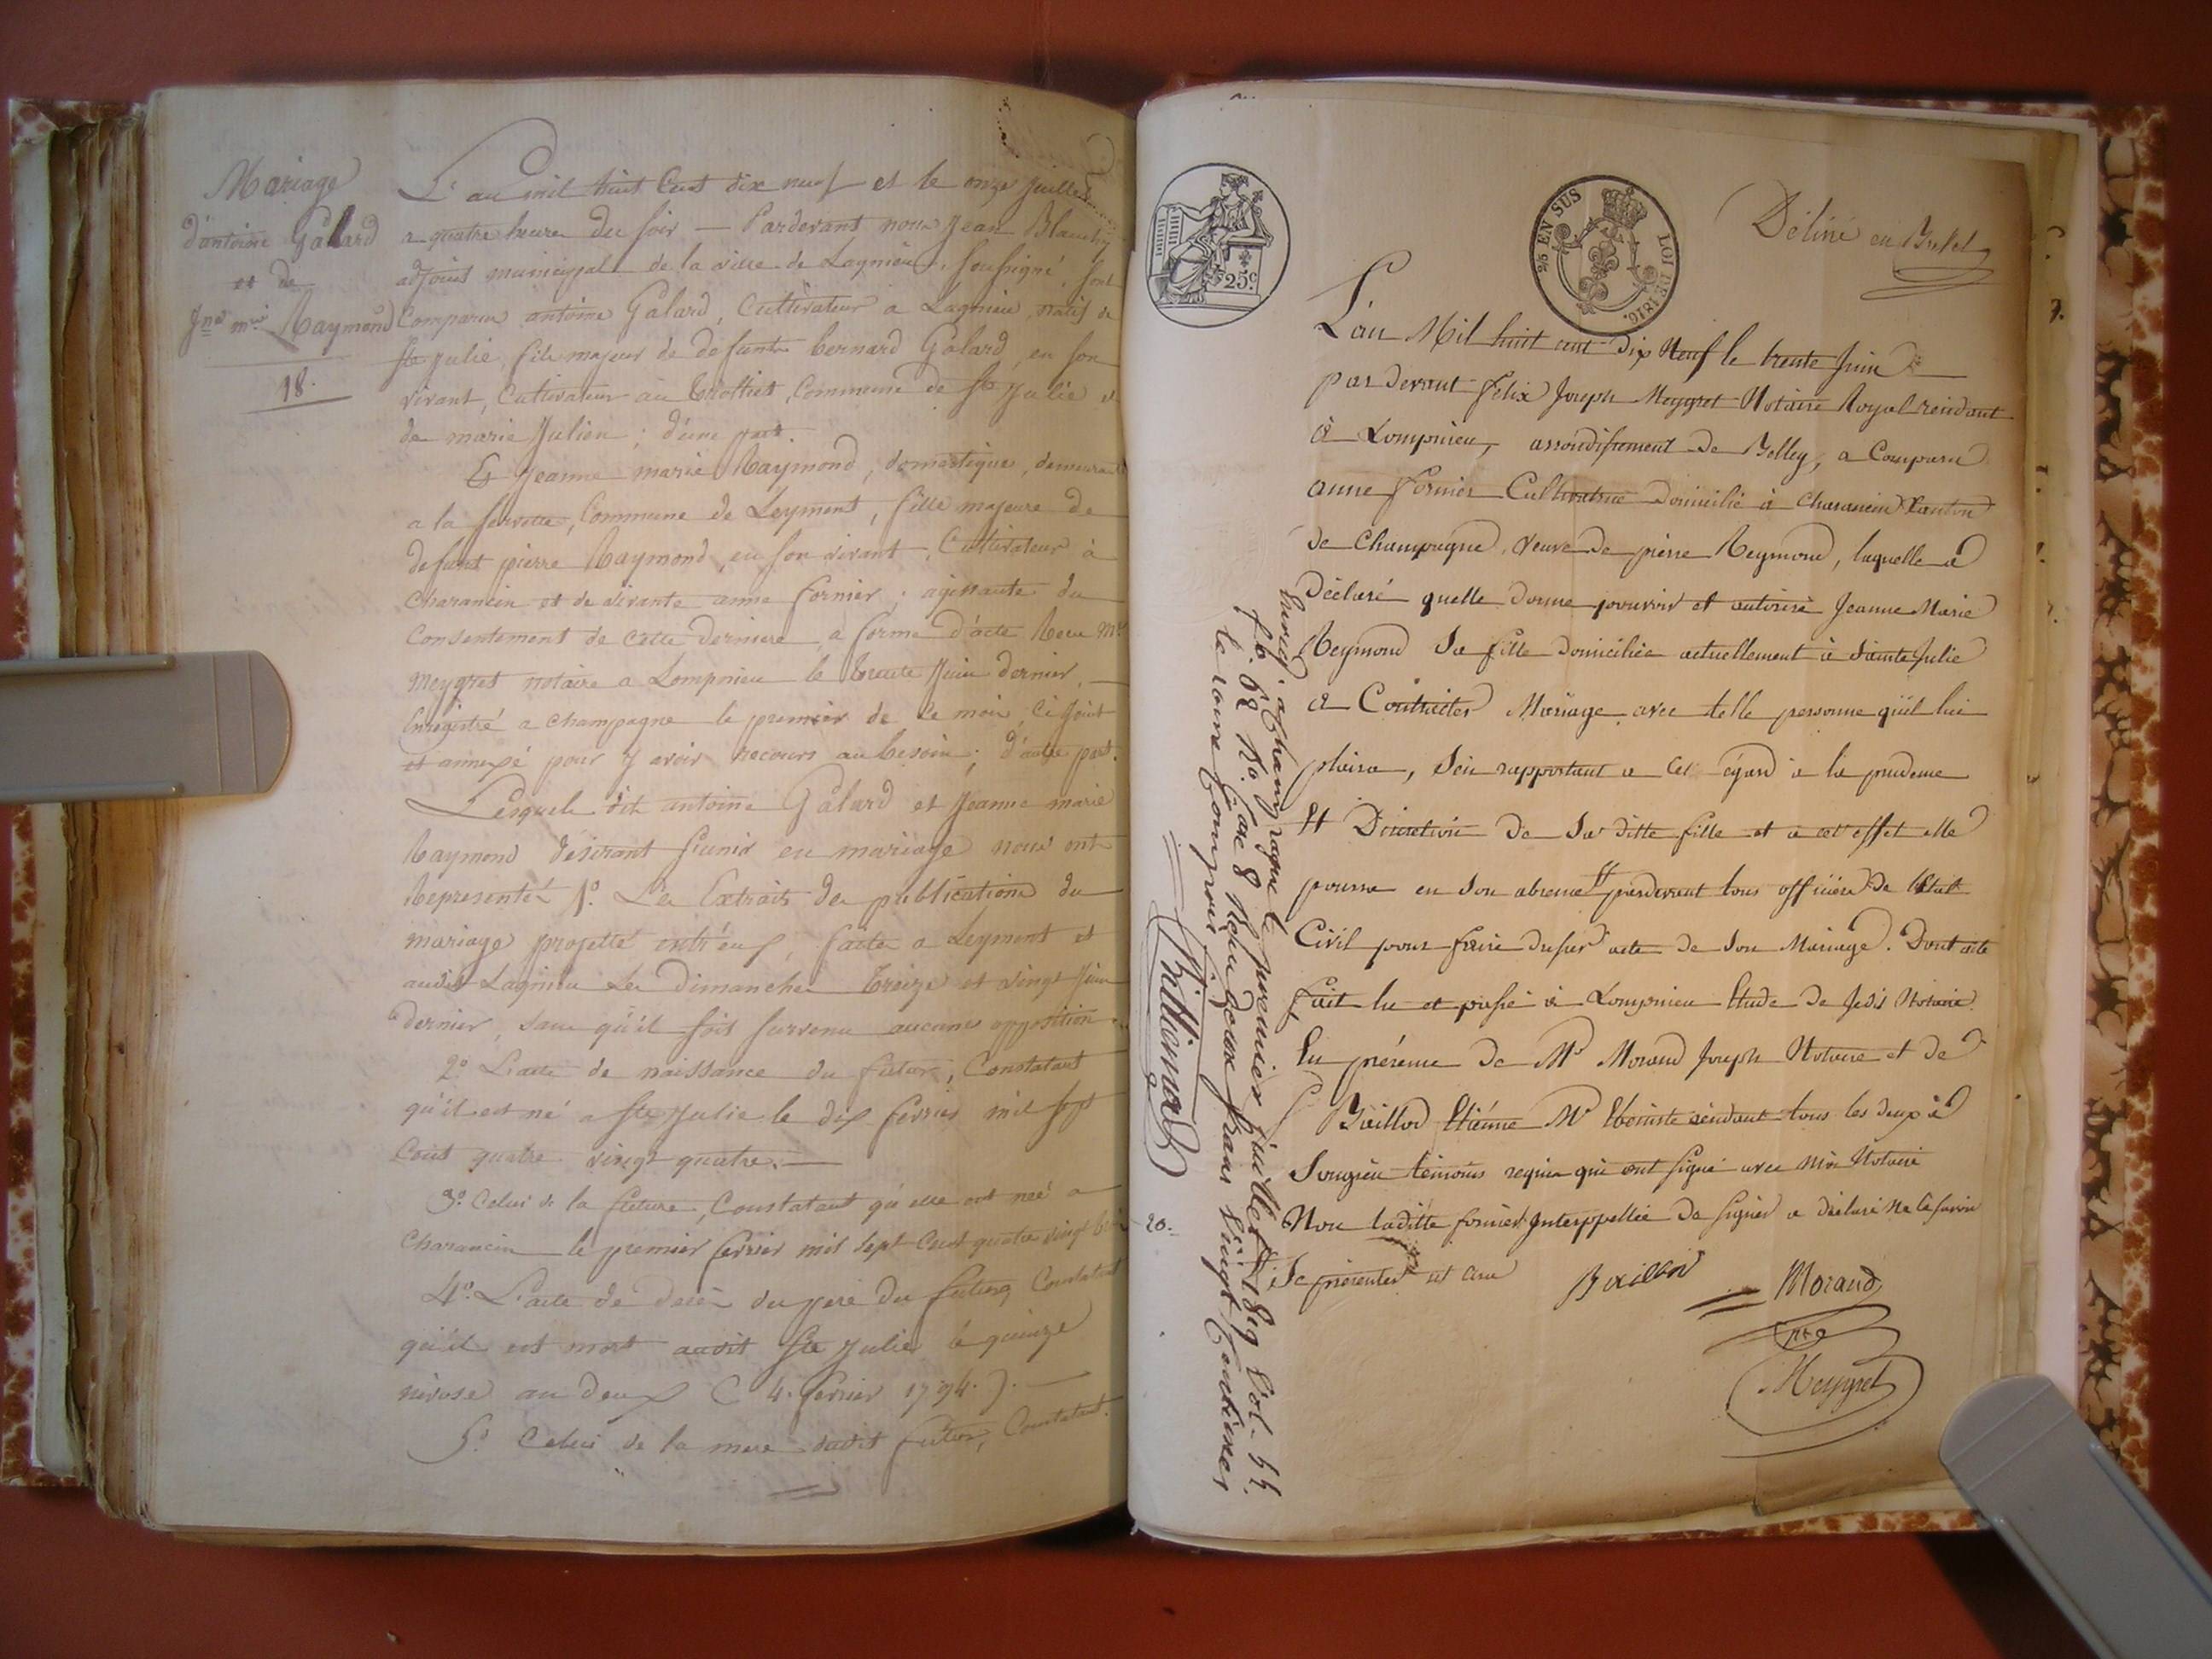 Mariage
d'antoine Galard
et de
Jne mie Raymond
18.
L'an mil huit Cent dix neuf et le onze juillet
a quatre heures du soir — Pardevant nous Jean Blanchy
adjoint municipal de la ville de Lagnieu, soussigné, sont
Comparu antoine Galard, Cultivateur a Lagnieu, natif de
Ste Julie, fils majeur de defunts bernard Galard, en son
vivant, Cultivateur au trottiet, Commune de Ste Julie et
de marie Julien ; d'une part.
Et jeanne marie Raymond, domestique, demeurant
a la servette, Commune de Leyment, fille majeure de
defunt pierre Raymond, en son vivant, Cultivateur à
Charancin et de vivante anne fornier ; agissante du
Consentement de cette derniere, a forme d'acte Recu Me
Meygret notaire a Lompnieu le trente Juin dernier, —
Enregistré a champagne le premier de ce mois, ci joint
et annexé pour y avoir recours au besoin ; d'autre part.
Lesquels dit antoine Galard et Jeanne marie
Raymond desirant s'unir en mariage nous ont
Representé 1o. Les Extraits des publications du
mariage projetté entr'eux, faites a Leyment et
audit Lagnieu les Dimanches treize et vingt Juin
dernier, sans qu'il soit survenu aucune opposition.
2o L'acte de naissance du futur, Constatant
qu'il est né a Ste Julie le dix fevrier mil sept
Cent quatre vingt quatre. —
3o Celui de la future, Constatant qu'elle est neé a
Charancin le premier fevrier mil sept Cent quatre vingt
4o. L'acte de deces du pere du futur, Constatant
qu'il est mort audit Ste Julie le quinze
nivose an deux ( 4. fevrier 1794. ). —
5o Celui de la mere dudit futur, Constatant.
25c
25 EN SUS
LOI DE 1816.
Délivré en Brevet
L'an Mil huit cent dix Neuf le trente Juin
par devant Felix Joseph Meygret Notaire Royal residant
à Lompnieu, arrondissement de Belley, a Comparu
anne fornier Cultivatrice Domicilié à Charancin Canton
de Champagne, veuve de pierre Reymond, laquelle a
Déclaré quelle donne pouvoir et autorise Jeanne Marie
Reymond Sa fille domiciliée actuellement à Sainte Julie
a Contracter Mariage avec telle personne quil lui
plaira, S'en rapportant a cet égard a la prudence
Et Discretion de Sa ditte fille et à cet effet elle
pourra en Son absence pardevant tous officiers de l'Etat
Civil pour faire dresser acte de Son Mariage. Dont acte
fait lu et passé à Lompnieu Etude de Jedit Notaire
En présence de Me Morand Joseph Notaire et de
Baillod Etiénne Me residant tous les deux à
Songieu témoins requis qui ont signé avec moi Notaire
Non laditte fornier Interppellée de signer a déclaré ne le savoir
20.
Baillod
Morand
Nre
Meygret
Enregé a Champagne le premier juillet 1819 Vol. 55.
fo. 62 Ro. Case 8 Recu deux francs vingt Centimes
le 10ème Compris